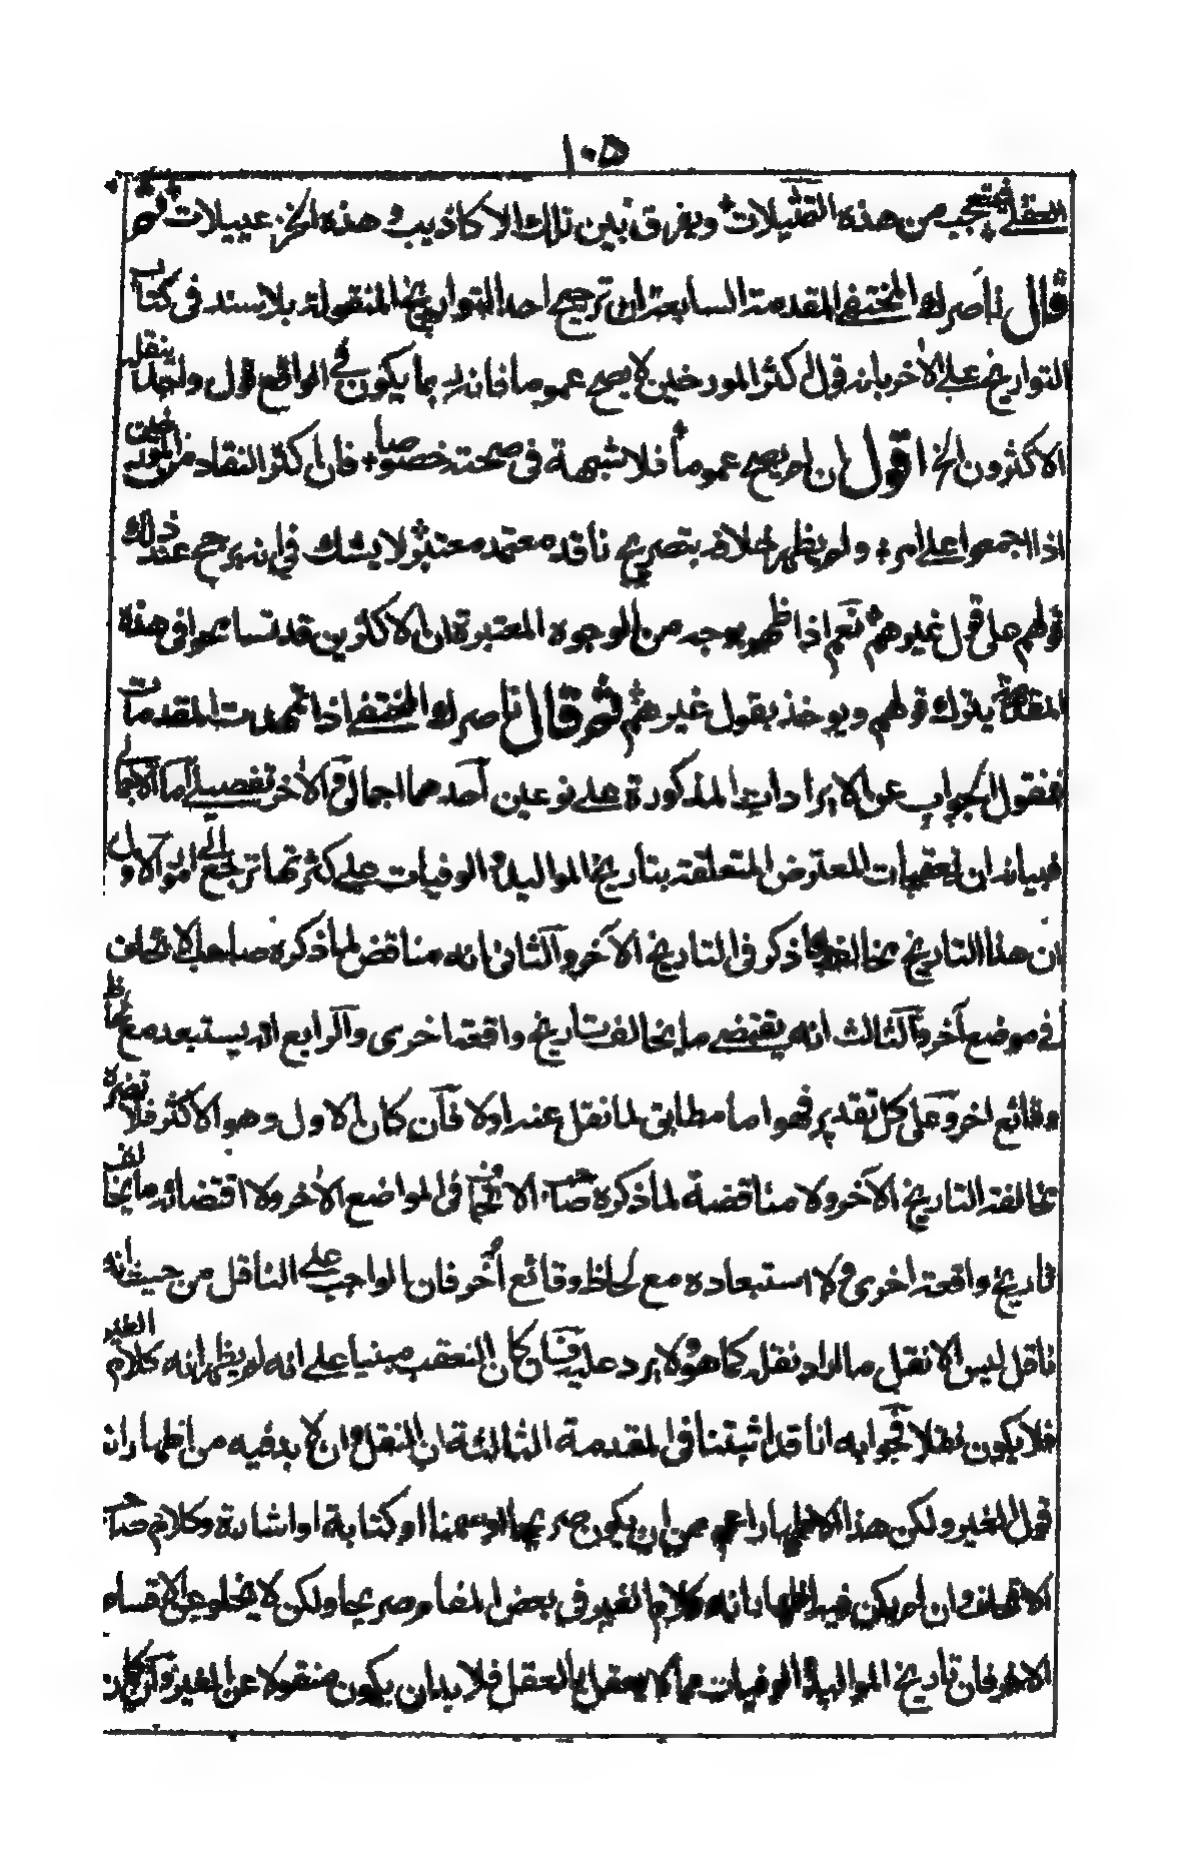 ١٠٥
العقلاء يتعجب من هذه التمثيلات ويفرق بين تلك الاكاذيب وهذه الخزعبيلات ثم
قال ناصرك المختفي المقدمة السابعة ان ترجيح احد التواريخ المنقولة بلا سند في كتاب
التواريخ على الآخر بانه قول اكثر المورخين لا يصح عموما فانه ربما يكون في الواقع قول واحد ينقله
الاكثرون الخ اقول ان لم يصح عموما فلا شبهة في صحته خصوصا فان اكثر النقاد من المورخين
اذا اجمعوا على امر ولم يظهر خلافه بتصريح ناقد معتمد معتبر لا يشك في انه يرجح عند ذلك
قولهم على قول غيرهم نعم اذا ظهر بوجه من الوجوه المعتبرة ان الاكثرين قد تسامحوا في هذه
المقدمة يترك قولهم ويوخذ بقول غيرهم ثم قال ناصرك المختفي اذا تمهدت المقدمات
فنقول الجواب عن الايرادات المذكورة على نوعين احدهما اجمالي والآخر تفصيلي اما الاجمالي
فبيانه ان تعقبات المعترض المتعلقة بتاريخ المواليد والوفيات على كثرتها ترجع الى امور الاول
ان هذا التاريخ مخالف لما ذكر في التاريخ الآخر والثاني انه مناقض لما ذكره صاحب الاتحاف
في موضع آخر والثالث انه يقتضي ما يخالف تاريخ واقعة اخرى والرابع انه يستبعد مع لحاظ
وقائع اخر وعلى كل تقدير فهو اما مطابق لما نقل عنه او لا فان كان الاول وهو الاكثر فلا تضره
مخالفة التاريخ الآخر ولا مناقضة لما ذكره صاحب الاتحاف في المواضع الآخر ولا اقتضائه ما يخالف
تاريخ واقعة اخرى ولا استبعاده مع لحاظ وقائع أخر فان الواجب على الناقل من حيث انه
ناقل ليس الا نقل ما اراد نقله كما هو ولا يرد عليه فان كان التعقب مبنيا على انه لم يظهر انه كلام الغير
فلا يكون نقلا فجوابه انا قد اثبتنا في المقدمة الثالثة ان النقل وان لا بد فيه من اظهار انه
قول الغير ولكن هذا الاظهار اعم من ان يكون صريحا او ضمنا او كتابة او اشارة وكلام صاحب
الاتحاف وان لم يكن فيه اظهار انه كلام الغير في بعض المقام صريحا ولكن لا يخلو عن الاقسام
الاخر فان تاريخ المواليد والوفيات مما لا يعقل بالعقل فلا بد ان يكون منقولا عن الغير وان كان